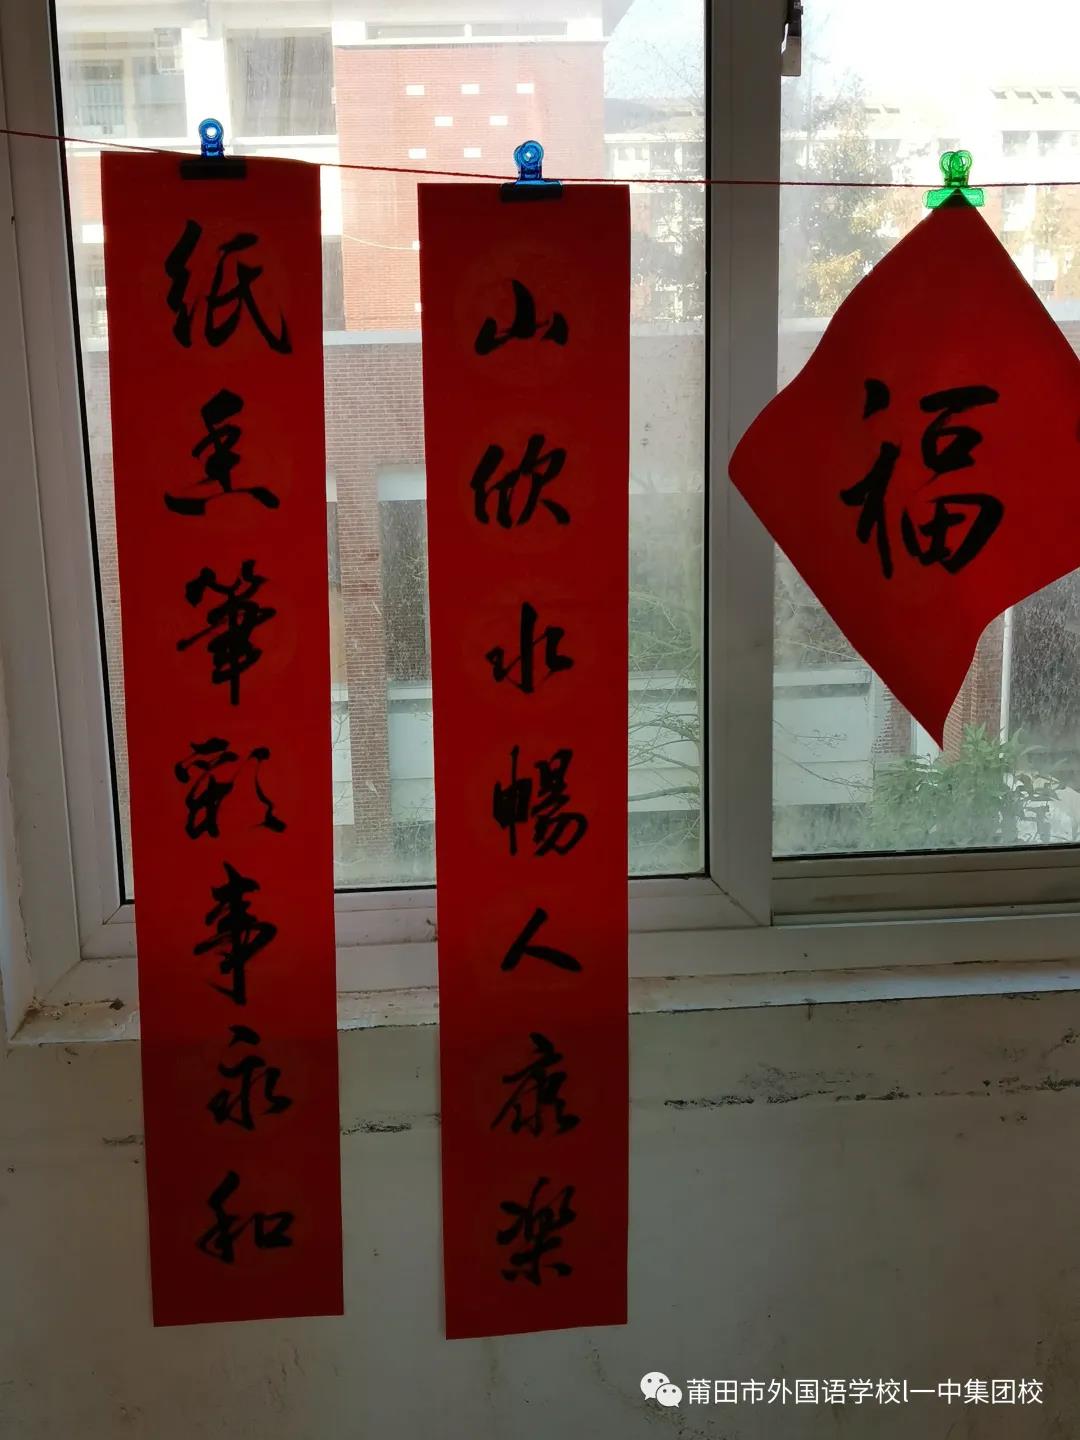 纸墨筆彩事永和
山欣水暢人康樂
福
莆田市外国语学校l一中集团校